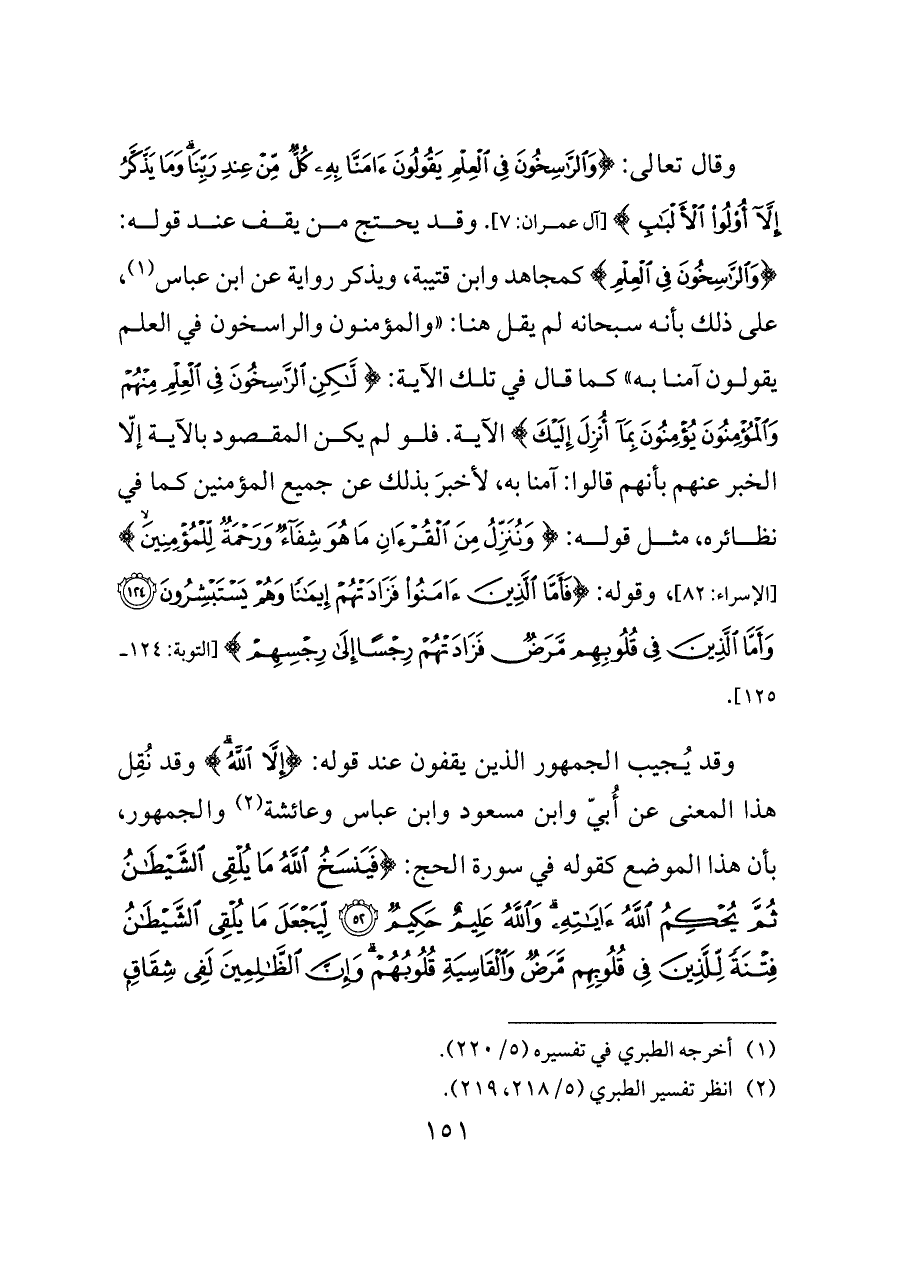 وقال تعالى: ﴿وَٱلرَّٰسِخُونَ فِى ٱلْعِلْمِ يَقُولُونَ ءَامَنَّا بِهِۦ كُلٌّ مِّنْ عِندِ رَبِّنَا ۗ وَمَا يَذَّكَّرُ
إِلَّآ أُو۟لُوا۟ ٱلْأَلْبَٰبِ﴾ [آل عمران: ٧]. وقد يحتج من يقف عند قوله:
﴿وَٱلرَّٰسِخُونَ فِى ٱلْعِلْمِ﴾ كمجاهد وابن قتيبة، ويذكر رواية عن ابن عباس(١)،
على ذلك بأنه سبحانه لم يقل هنا: «والمؤمنون والراسخون في العلم
يقولون آمنا به» كما قال في تلك الآية: ﴿لَّٰكِنِ ٱلرَّٰسِخُونَ فِى ٱلْعِلْمِ مِنْهُمْ
وَٱلْمُؤْمِنُونَ يُؤْمِنُونَ بِمَآ أُنزِلَ إِلَيْكَ﴾ الآية. فلو لم يكن المقصود بالآية إلّا
الخبر عنهم بأنهم قالوا: آمنا به، لأخبرَ بذلك عن جميع المؤمنين كما في
نظائره، مثل قوله: ﴿وَنُنَزِّلُ مِنَ ٱلْقُرْءَانِ مَا هُوَ شِفَآءٌ وَرَحْمَةٌ لِّلْمُؤْمِنِينَ ۙ﴾
[الإسراء: ٨٢]، وقوله: ﴿فَأَمَّا ٱلَّذِينَ ءَامَنُوا۟ فَزَادَتْهُمْ إِيمَٰنًا وَهُمْ يَسْتَبْشِرُونَ ١٢٤
وَأَمَّا ٱلَّذِينَ فِى قُلُوبِهِم مَّرَضٌ فَزَادَتْهُمْ رِجْسًا إِلَىٰ رِجْسِهِمْ﴾ [التوبة: ١٢٤-
١٢٥].
وقد يُجيب الجمهور الذين يقفون عند قوله: ﴿إِلَّا ٱللَّهُ ۗ﴾ وقد نُقِل
هذا المعنى عن أُبيّ وابن مسعود وابن عباس وعائشة(٢) والجمهور،
بأن هذا الموضع كقوله في سورة الحج: ﴿فَيَنسَخُ ٱللَّهُ مَا يُلْقِى ٱلشَّيْطَٰنُ
ثُمَّ يُحْكِمُ ٱللَّهُ ءَايَٰتِهِۦ ۗ وَٱللَّهُ عَلِيمٌ حَكِيمٌ ٥٢ لِّيَجْعَلَ مَا يُلْقِى ٱلشَّيْطَٰنُ
فِتْنَةً لِّلَّذِينَ فِى قُلُوبِهِم مَّرَضٌ وَٱلْقَاسِيَةِ قُلُوبُهُمْ ۗ وَإِنَّ ٱلظَّٰلِمِينَ لَفِى شِقَاقٍ
(١) أخرجه الطبري في تفسيره (٥/ ٢٢٠).
(٢) انظر تفسير الطبري (٥/ ٢١٨، ٢١٩).
١٥١